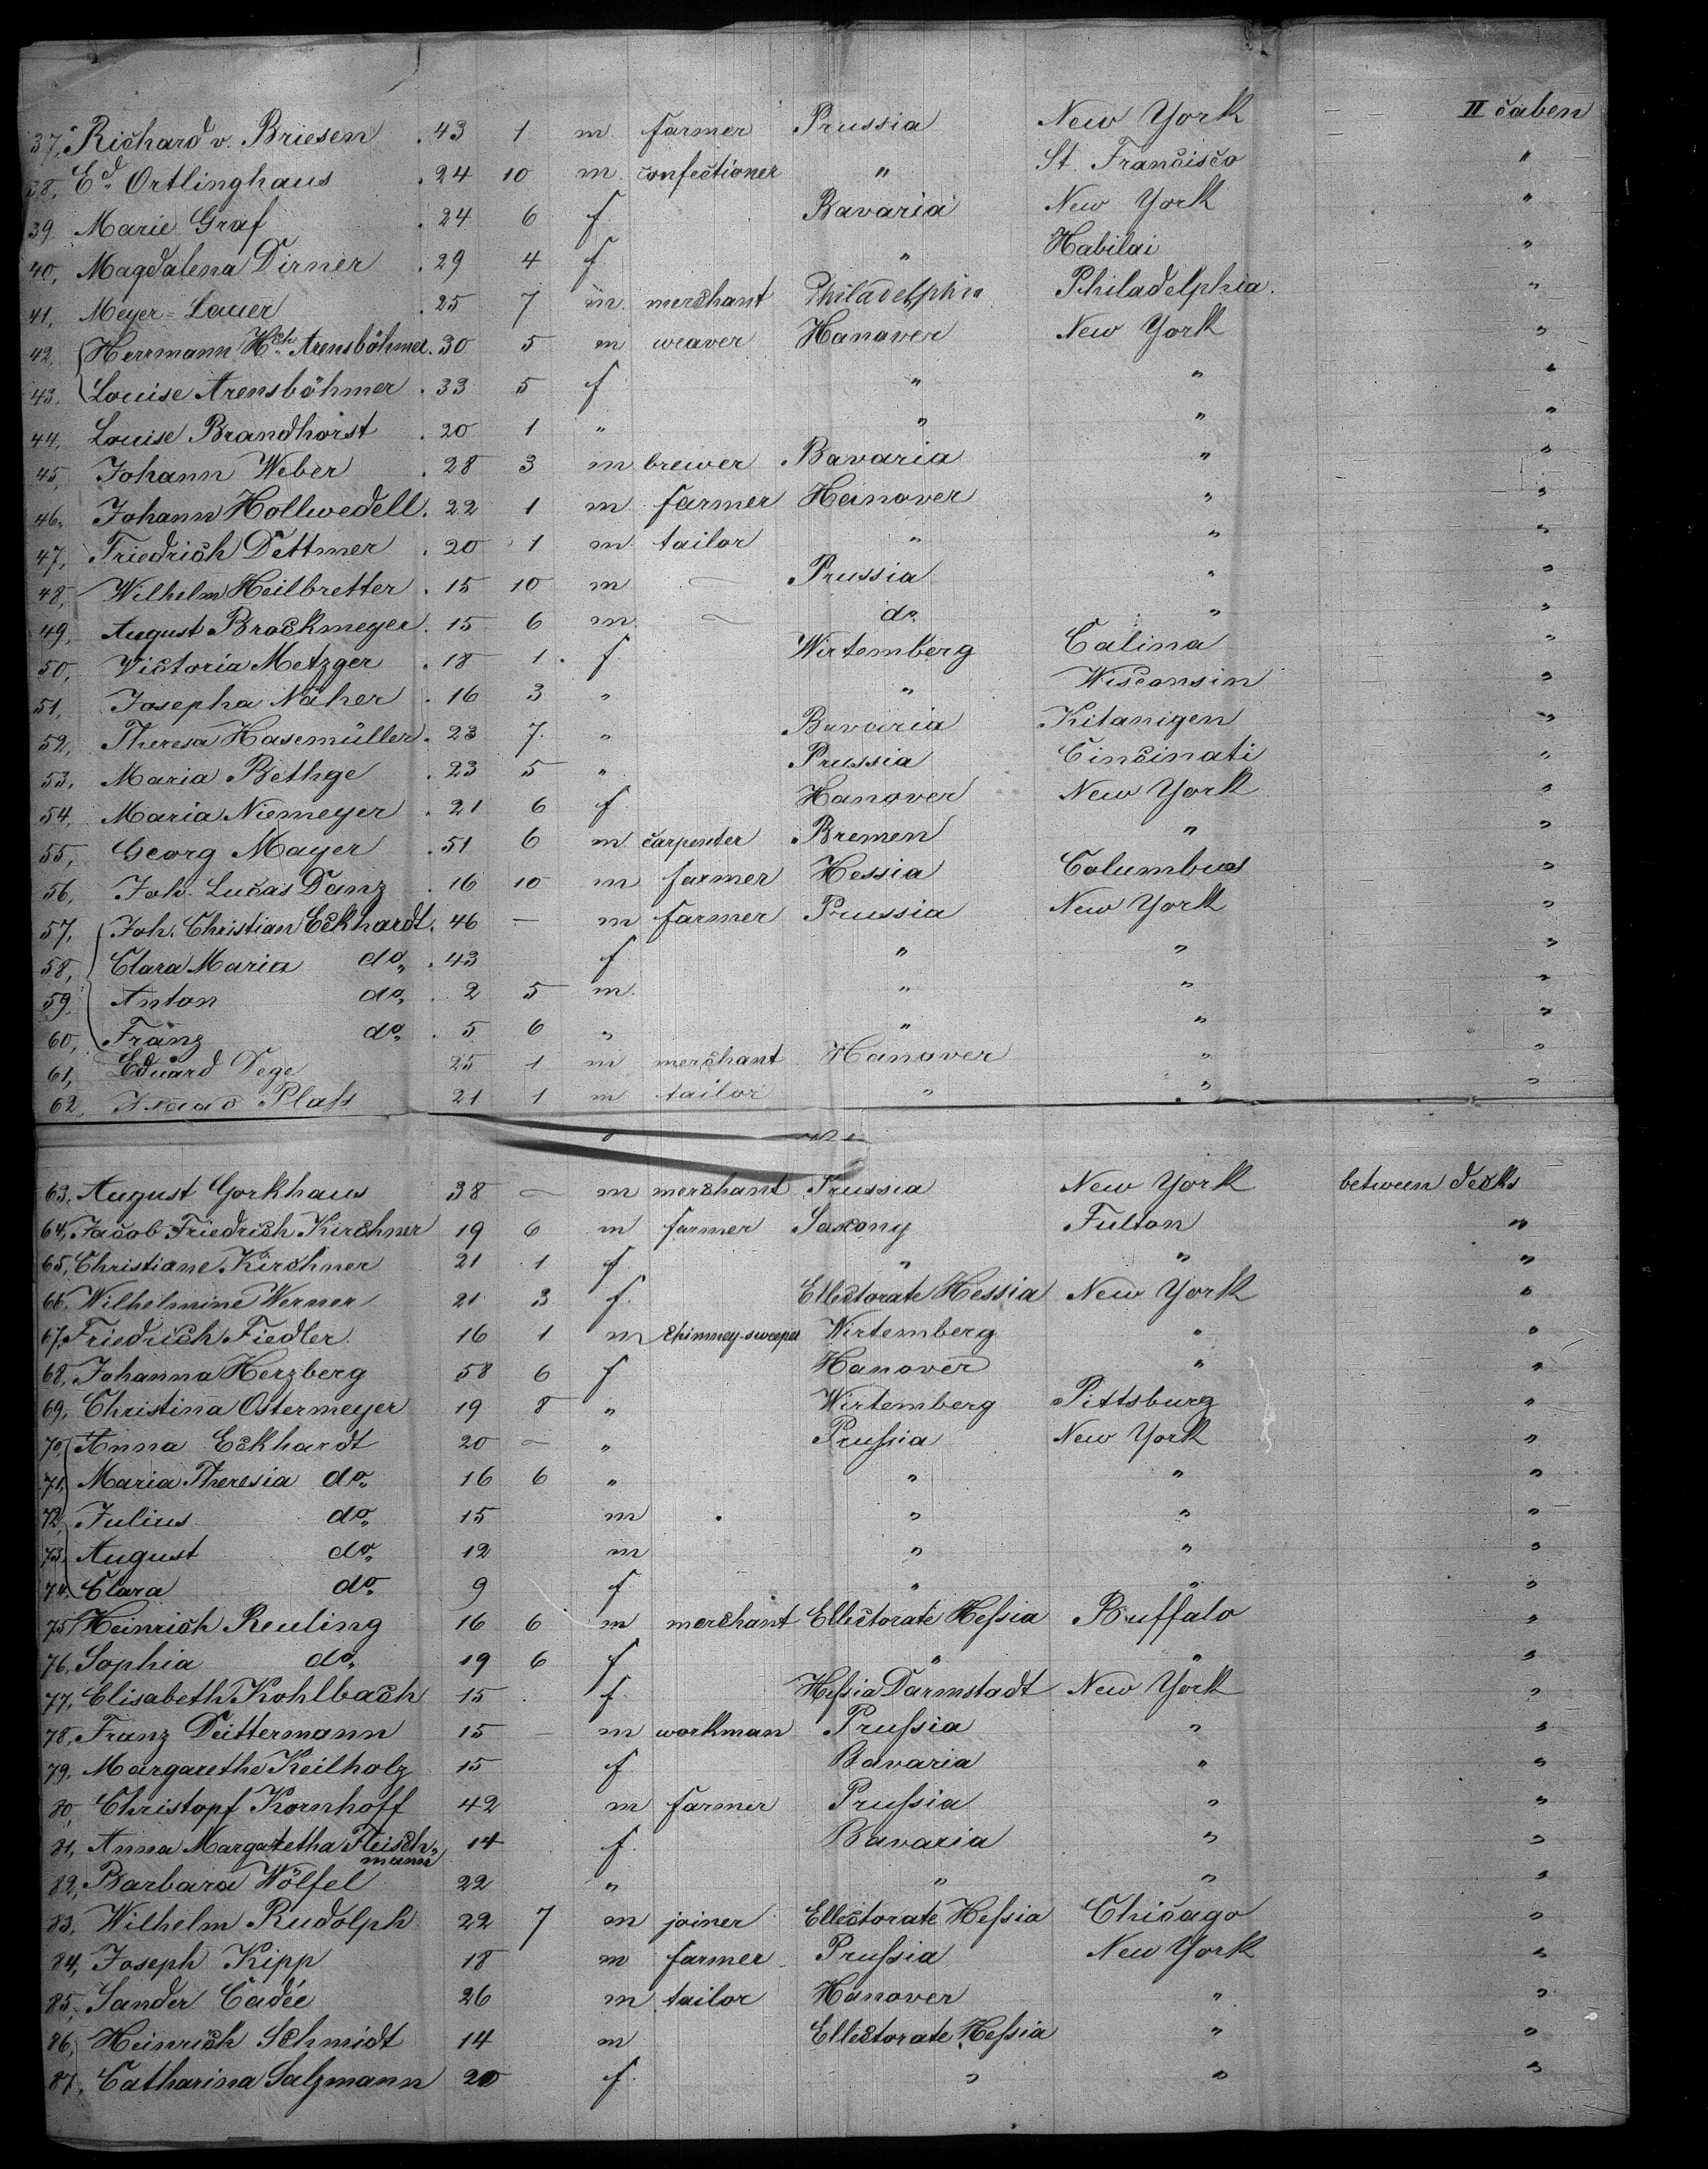 37, Richard v. Briesen . 43 1 m. farmer Prussia New York — — II caben
38, Ed. Ortlinghaus . 24 10 m. confectioner " St. Francisco "
39. Marie Graf . 24 6 f Bavaria New York "
40, Magdalena Dirner . 29 4 f " Habilai "
41, Meyer=Lauer . 25 7 m. merchant Philadelphia Philadelphia. "
42, Herrmann Hch. Arensböhmer. 30 5 m weaver Hanover New York "
43, Louise Arensböhmer . 33 5 f " " "
44, Louise Brandhorst . 20 1 " " " "
45, Johann Weber . 28 3 m brewer Bavaria " "
46. Johann Hollwedell. 22 1 m farmer Hanover " "
47, Friedrich Dettmer . 20 1 m. tailor " " "
48, Wilhelm Heilbretter . 15 10 m — Prussia " "
49, August Brockmeyer. 15 6 m. — do. " "
50, Victoria Metzger . 18 1 . f Wirtemberg Calima "
51, Josepha Näher . 16 3 " " Wisconsin "
52, Theresa Hasemüller. 23 7. " Bavaria Kitanigen "
53, Maria Bethge . 23 5 " Prussia Cincinati "
54, Maria Niemeyer . 21 6 f Hanover New York "
55, Georg Mayer . 51 6 m carpenter Bremen " "
56, Joh. Lucas Danz . 16 10 m farmer Hessia Columbus "
57, Joh. Christian Eckhardt. 46 — m farmer Prussia New York "
58, Clara Maria do. . 43 f " " "
59, Anton do. . 2 5 m. " " "
60, Franz do. . 5 6 " " " "
61, Eduard Dege 25 1 m merchant Hanover " "
62, Plaß 21 1 m tailor " " "
63, August Gorkhaus 38 — m merchant Prussia New York between decks
64, Jacob Friedrich Kirchner 19 6 m farmer Saxony Fulton "
65, Christiane Kirchner 21 1 f " " "
66, Wilhelmine Werner 21 3 f. Ellectorate Hessia New York "
67, Friedrich Fiedler. 16 1 m chimney-sweeper Wirtemberg " "
68, Johanna Herzberg 58 6 f Hanover " "
69, Christina Ostermeyer 19 8 " Wirtemberg Pittsburg "
70, Anna Eckhardt 20 — " Prußia New York "
71, Maria Theresia do. 16 6 " " " "
72, Julius do. 15 m . " " "
73, August do. 12 m " " "
74, Clara do. 9 f " " "
75, Heinrich Reuling 16 6 m merchant Ellectorate Heßia Buffalo "
76, Sophia do. 19 6 f " " "
77, Elisabeth Kohlbach 15 . f. Heßia Darmstadt New York "
78, Franz Deittermann 15 — m workman Prußia " "
79, Margarethe Keilholz 15 f Bavaria " "
80, Christopf Kornhoff 42 m farmer Prußia " "
81, Anna Margaretha Fleisch- 14 f. Bavaria " "
mann
82, Barbara Wölfel 22 " " " "
83, Wilhelm Rudolph 22 7 m joiner Ellectorate Heßia Chicago "
84, Joseph Kipp 18 m farmer Prußia New York "
85, Sander Cadée 26 m tailor Hanover " "
86, Heinrich Schmidt 14 m Ellectorate Heßia " "
87, Catharina Salzmann 20 f. " " "